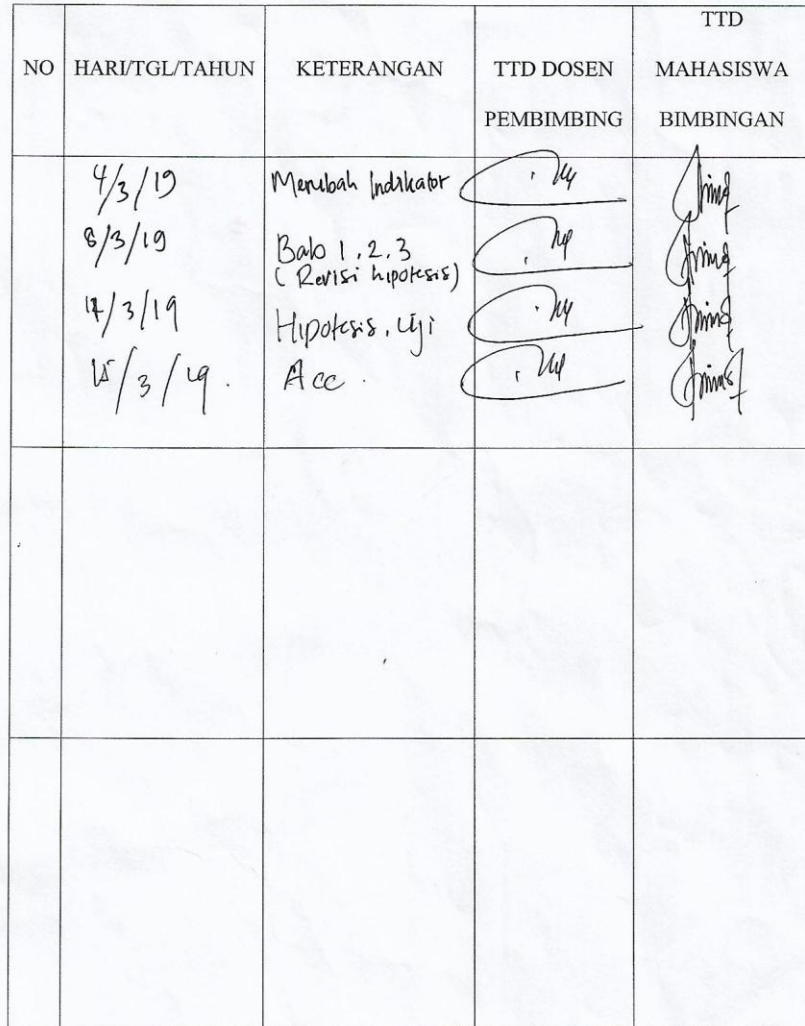 NO HARI/TGL/TAHUN KETERANGAN TTD DOSEN PEMBIMBING TTD MAHASISWA BIMBINGAN
4/3/19 Merubah Indikator
8/3/19 Bab 1, 2, 3
(Revisi hipotesis)
/3/19 Hipotesis, Uji
15/3/19. Acc.